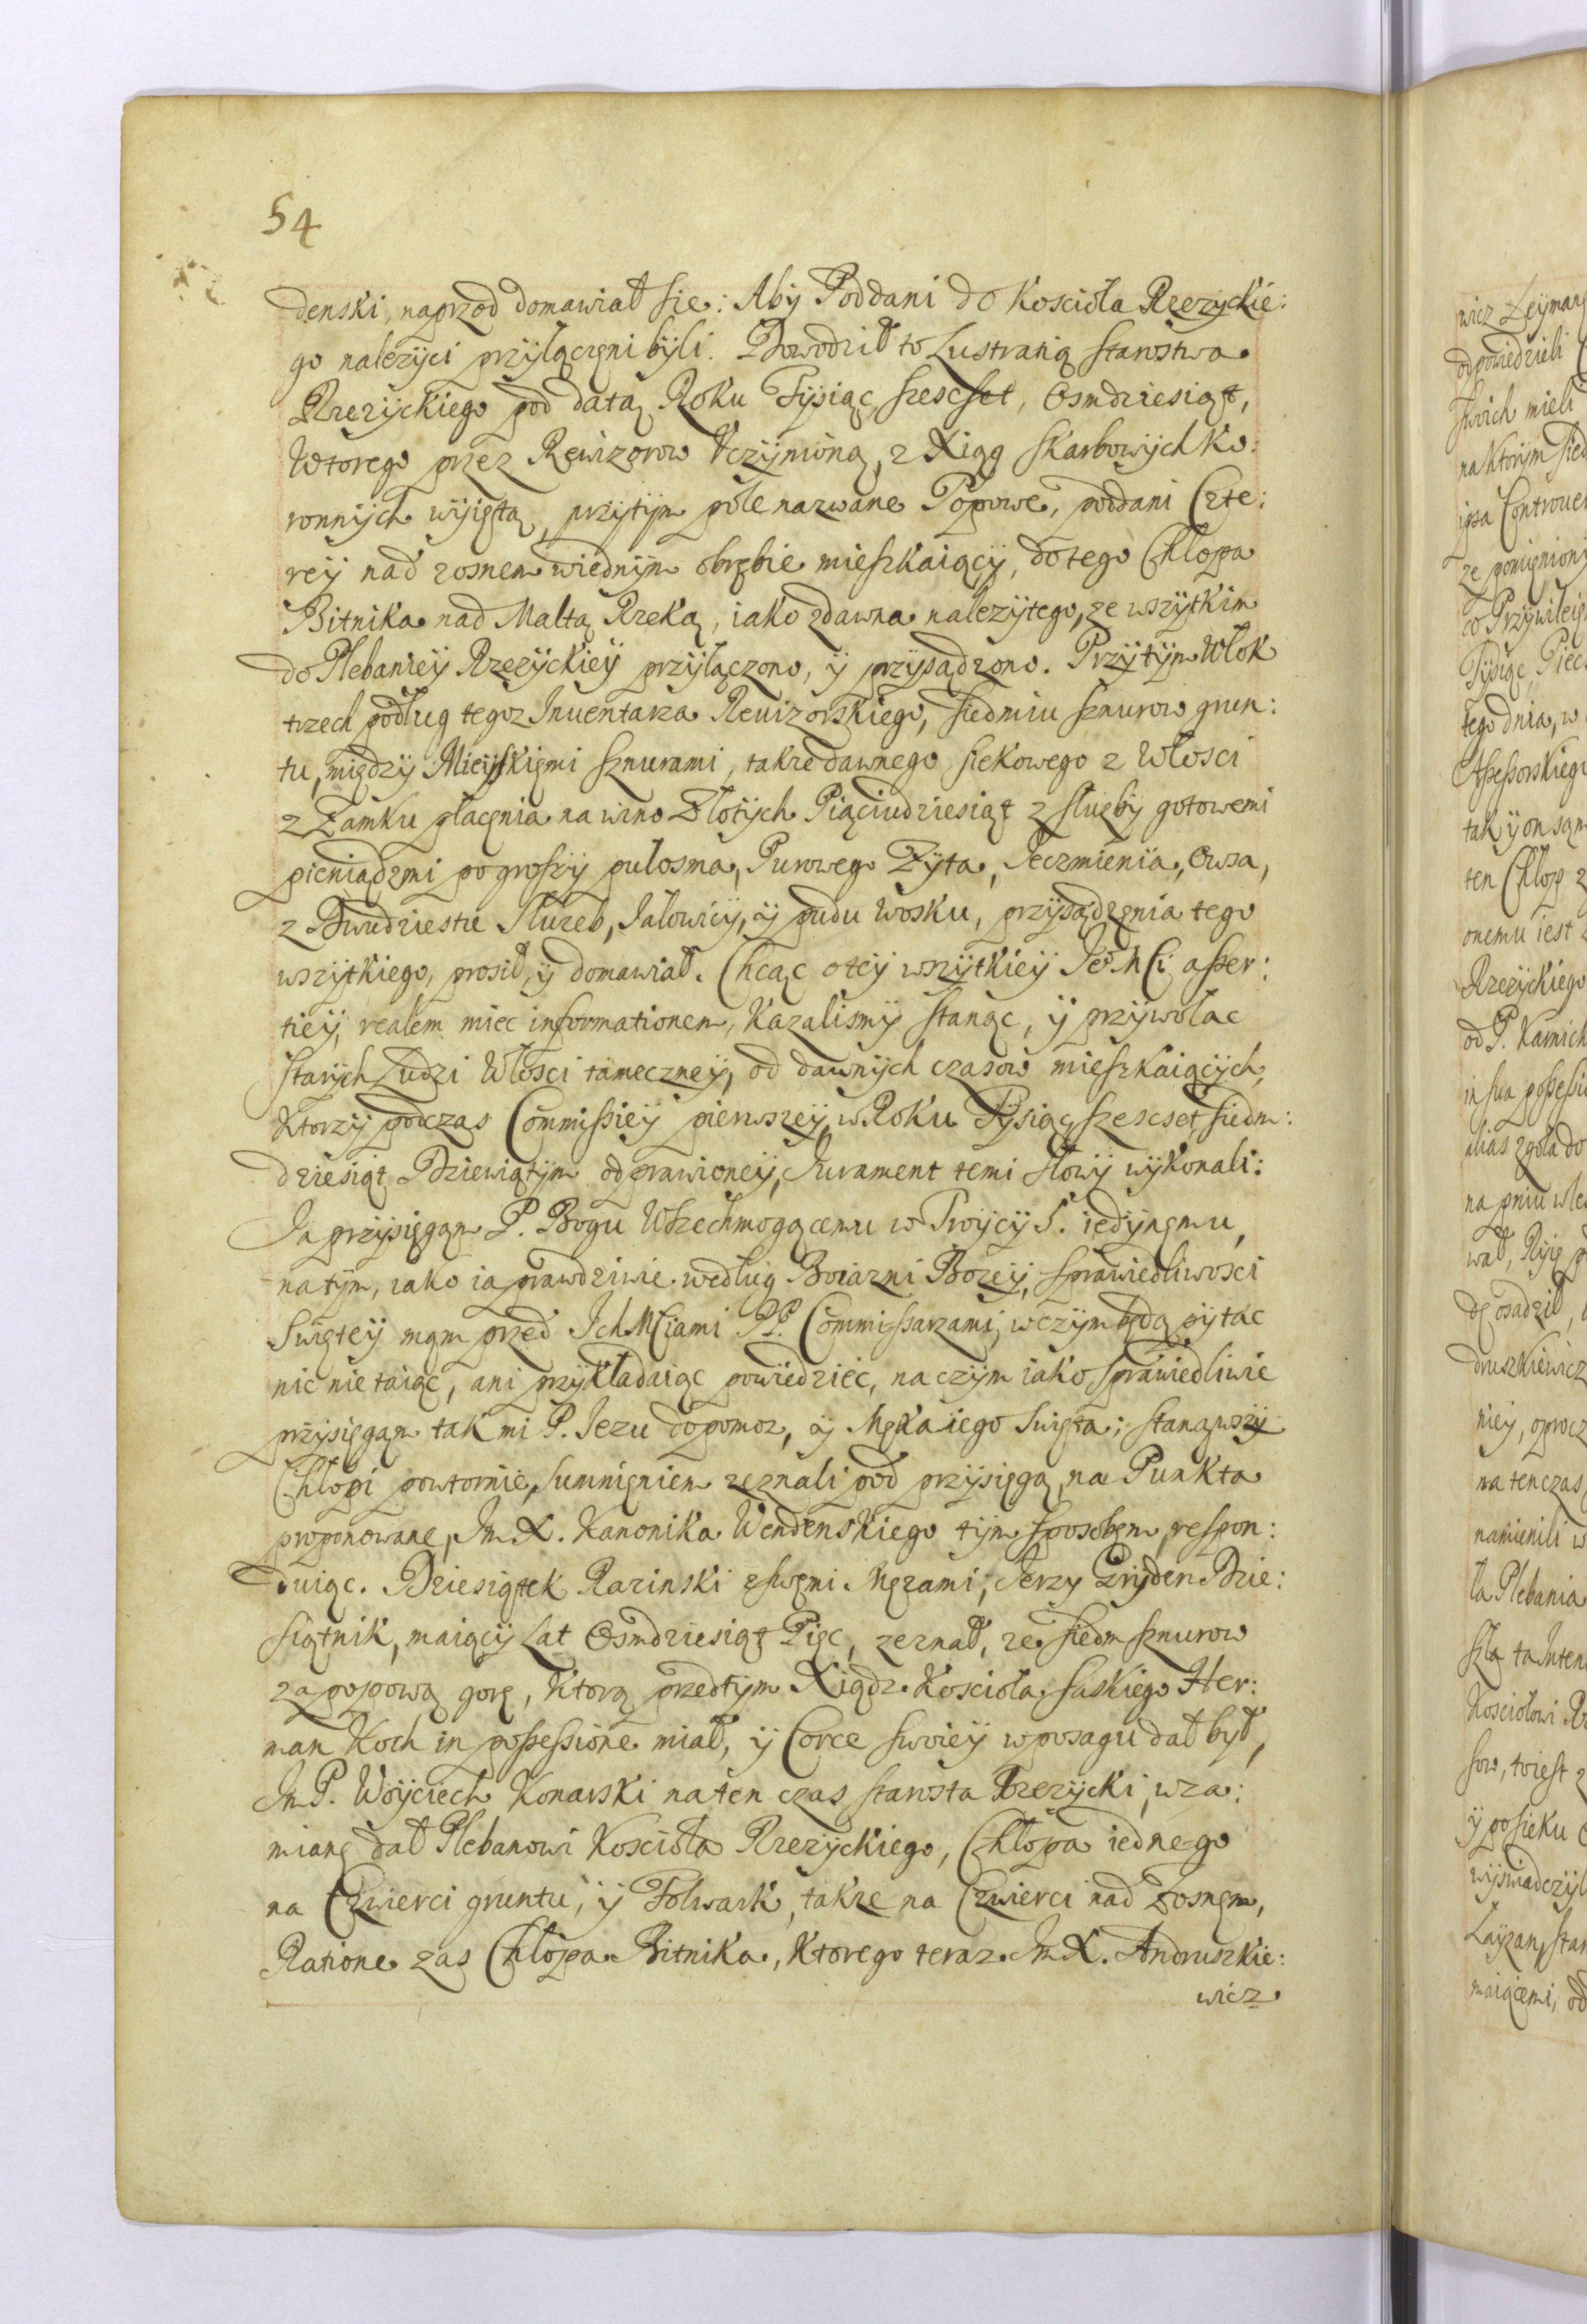 54
denski, naprzod domawiał się: Aby Poddani do Kosciola Rzezyckie:
go nalezyci przyłączeni byli. Dowodził to Lustratią starostwa
Rzezyckiego pod datą Roku Tysiąc szescset, Osmdziesiąt,
Wtorego przez Rewizorow Uczynioną, z Xiąg skarbowych Ko:
ronnych wyiętą, przytym pole nazwane Popowe, poddani Czte:
rey nad zosnem wiednym obrębie mieszkaiący, do tego Chłopa
Bitnika nad Maltą Rzeką, iako zdawna nalezytego, ze wszytkim
do Plebaniey Rzezyckiey przyłączono, y przysądzono. Przytym Włok
trzech podług tegoz Inuentarza Reuizorskiego, siedmiu sznurow grun:
tu, między Mieyskiemi sznurami, takze dawnego siekowego z Włosci
z Zamku płacenia na wino Złotych Piąciudziesiąt z słuzby gotowemi
pieniądzmi po groszy pułosma, Purowego Zyta, Ieczmienia, Owsa,
z Dwudziestu Słuzeb, Iałowicy, y pudu wosku, przysądzenia tego
wszytkiego, prosił, y domawiał. Chcąc o tey wszytkiey Ieo Mci asser:
tiey, realem miec informationem, Kazalismy stanąc, y przywołac
starych Ludzi Włosci tameczney, od dawnych czasow mieszkaiących,
Ktorzy podczas Commissiey pierwszey, w Roku Tysiąc szescset siedm:
dziesiąt Dziewiątym odprawioney, Iurament temi słowy wykonali:
Ia przysięgam P. Bogu Wszechmogącemu w Troycy S. iedynemu,
na tym, iako ia prawdziwie według Boiazni Bozey, sprawiedliwosci
Swiętey mam przed Ich Mciami PP. Commissarzami, w czym będą pytac
nic nie taiąc, ani przykładaiąc powiedziec, na czym iako sprawiedliwie
przysięgam tak mi P. Iezu dopomoz, y Męka iego Swięta; stanąwszy
Chłopi powtornie, sumnieniem zeznali pod przysięgą, na Punkta
proponowane, Im X. Kanonika Wendenskiego tym sposobem, respon:
duiąc. Dziesiątek Razinski z swemi Męzami, Ierzy Gryden Dzie:
siątnik, maiący Lat Osmdziesiąt Pięc, zeznał, ze siedm sznurow
za popową gorę, Ktorą przedtym Xiądz Kosciola saskiego Her:
man Koch in possessione miał, y Corce swoiey w posagu dał był,
Im P. Woyciech Konarski na ten czas starosta Rzezycki, w za:
mianę dał Plebanowi Kosciola Rzezyckiego, Chłopa iednego
na Czwierci gruntu, y Folwark, takze na Czwierci nad Zosnem,
Ratione zas Chłopa Bitnika, Ktorego teraz Im X. Andruszkie:
wicz